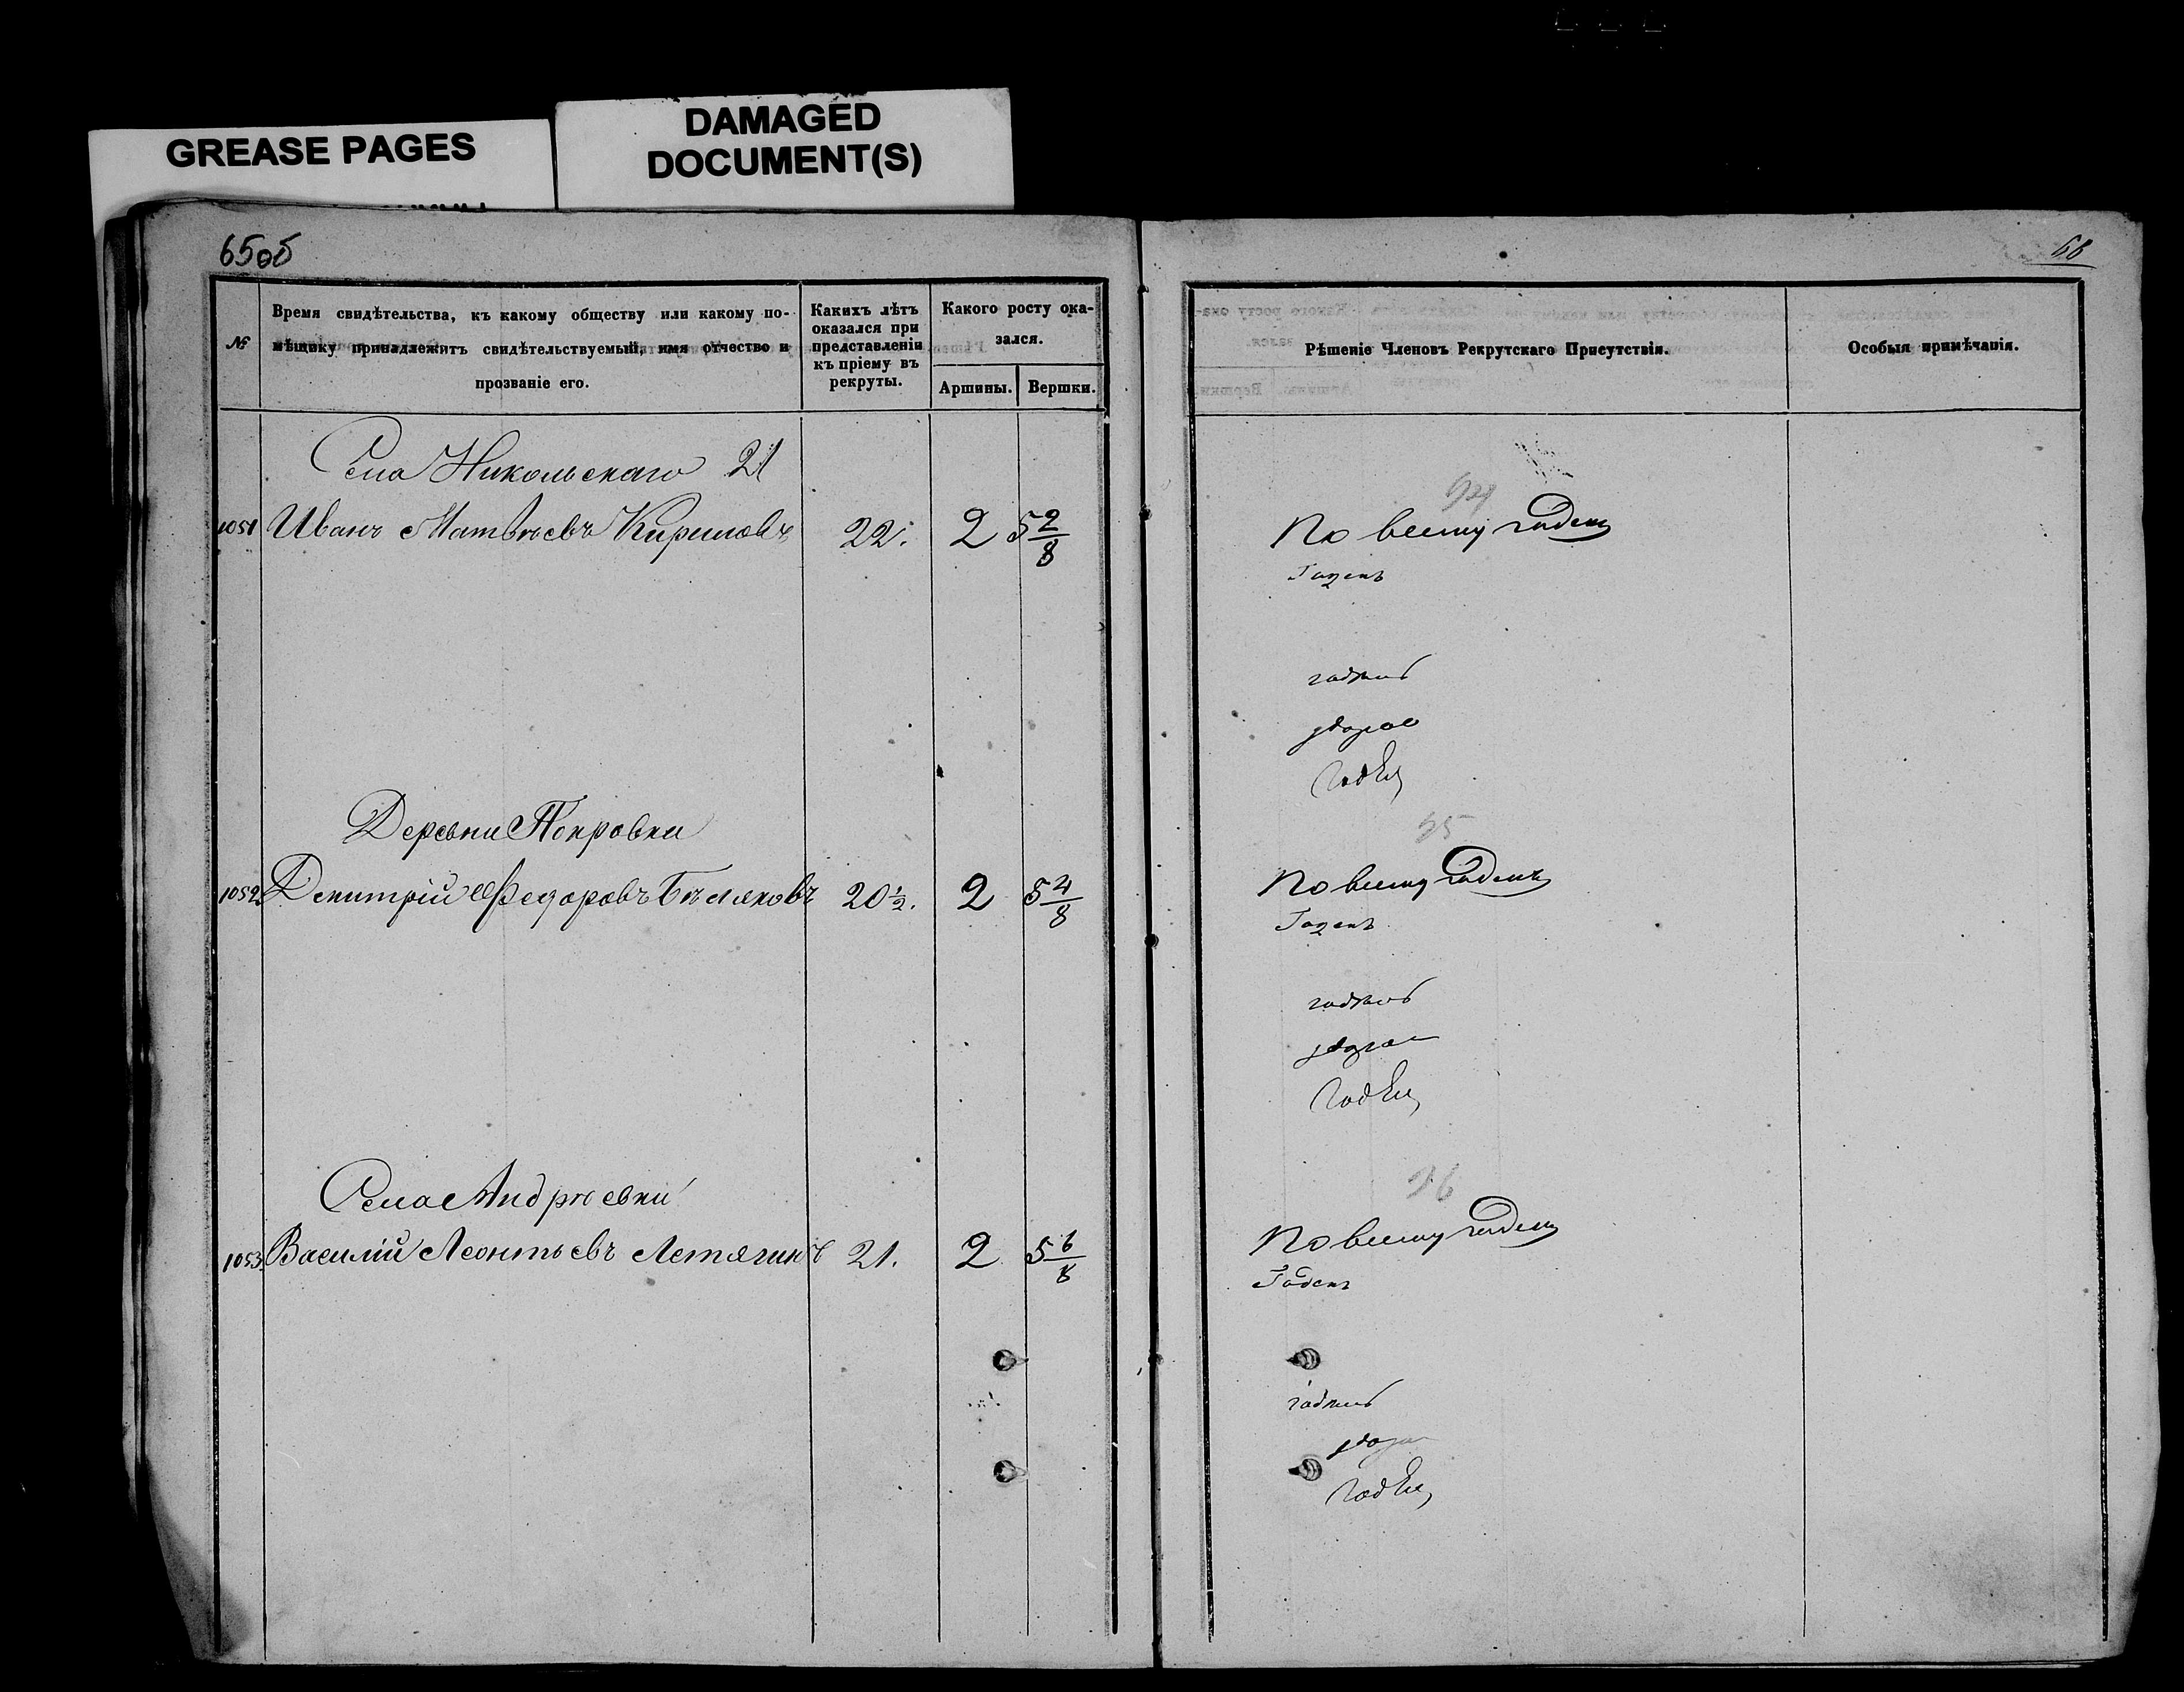 GREASE PAGES
DAMAGED
DOCUMENT(S)
65об
66
№
Время свидѣтельства, къ какому обществу или какому по-
мѣщику принадлежитъ свидѣтельствуемый, имя отчество и
прозваніе его.
Какихъ лѣтъ
оказался при
представленіи
къ пріему въ
рекруты.
Какого росту ока-
зался.
Аршины.
Вершки.
Рѣшеніе Членовъ Рекрутскаго Присутствія.
Особыя примѣчанія.
Села Никольскаго 21
94
1051 Иванъ Матвѣевъ Кириловъ 22. 2 5 2/8 По всему годенъ
Годенъ
годенъ
здоров
Годен
Деревни Покровки
95
1052 Дмитрій Федоровъ Бѣляковъ 20 ½. 2 5 4/8 По всему годенъ
Годенъ
годенъ
здоров
Годен
Села Андрѣевки
96
1053 Василій Леонтьевъ Летягинъ 21. 2 5 6/8 По всему годенъ
Годенъ
годенъ
Годен